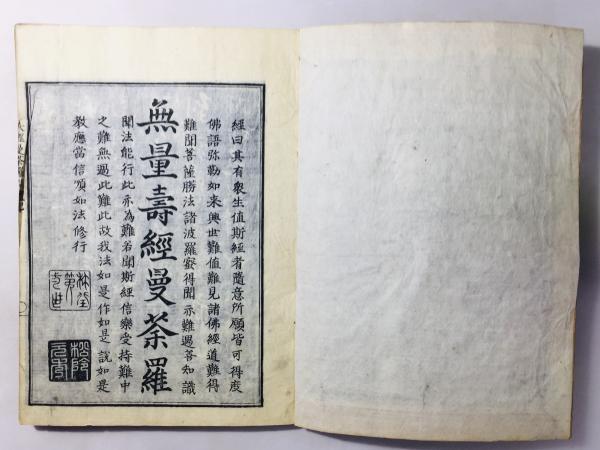 經曰其有衆生値斯經者隨意所願皆可得度
佛語弥勒如来興世難値難見諸佛經道難得
難聞菩薩勝法諸波羅蜜得聞亦難遇善知識
無量壽經曼荼羅
聞法能行此亦為難若聞斯經信樂受持難中
之難無過此難此故我法如是作如是說如是
教應當信順如法修行